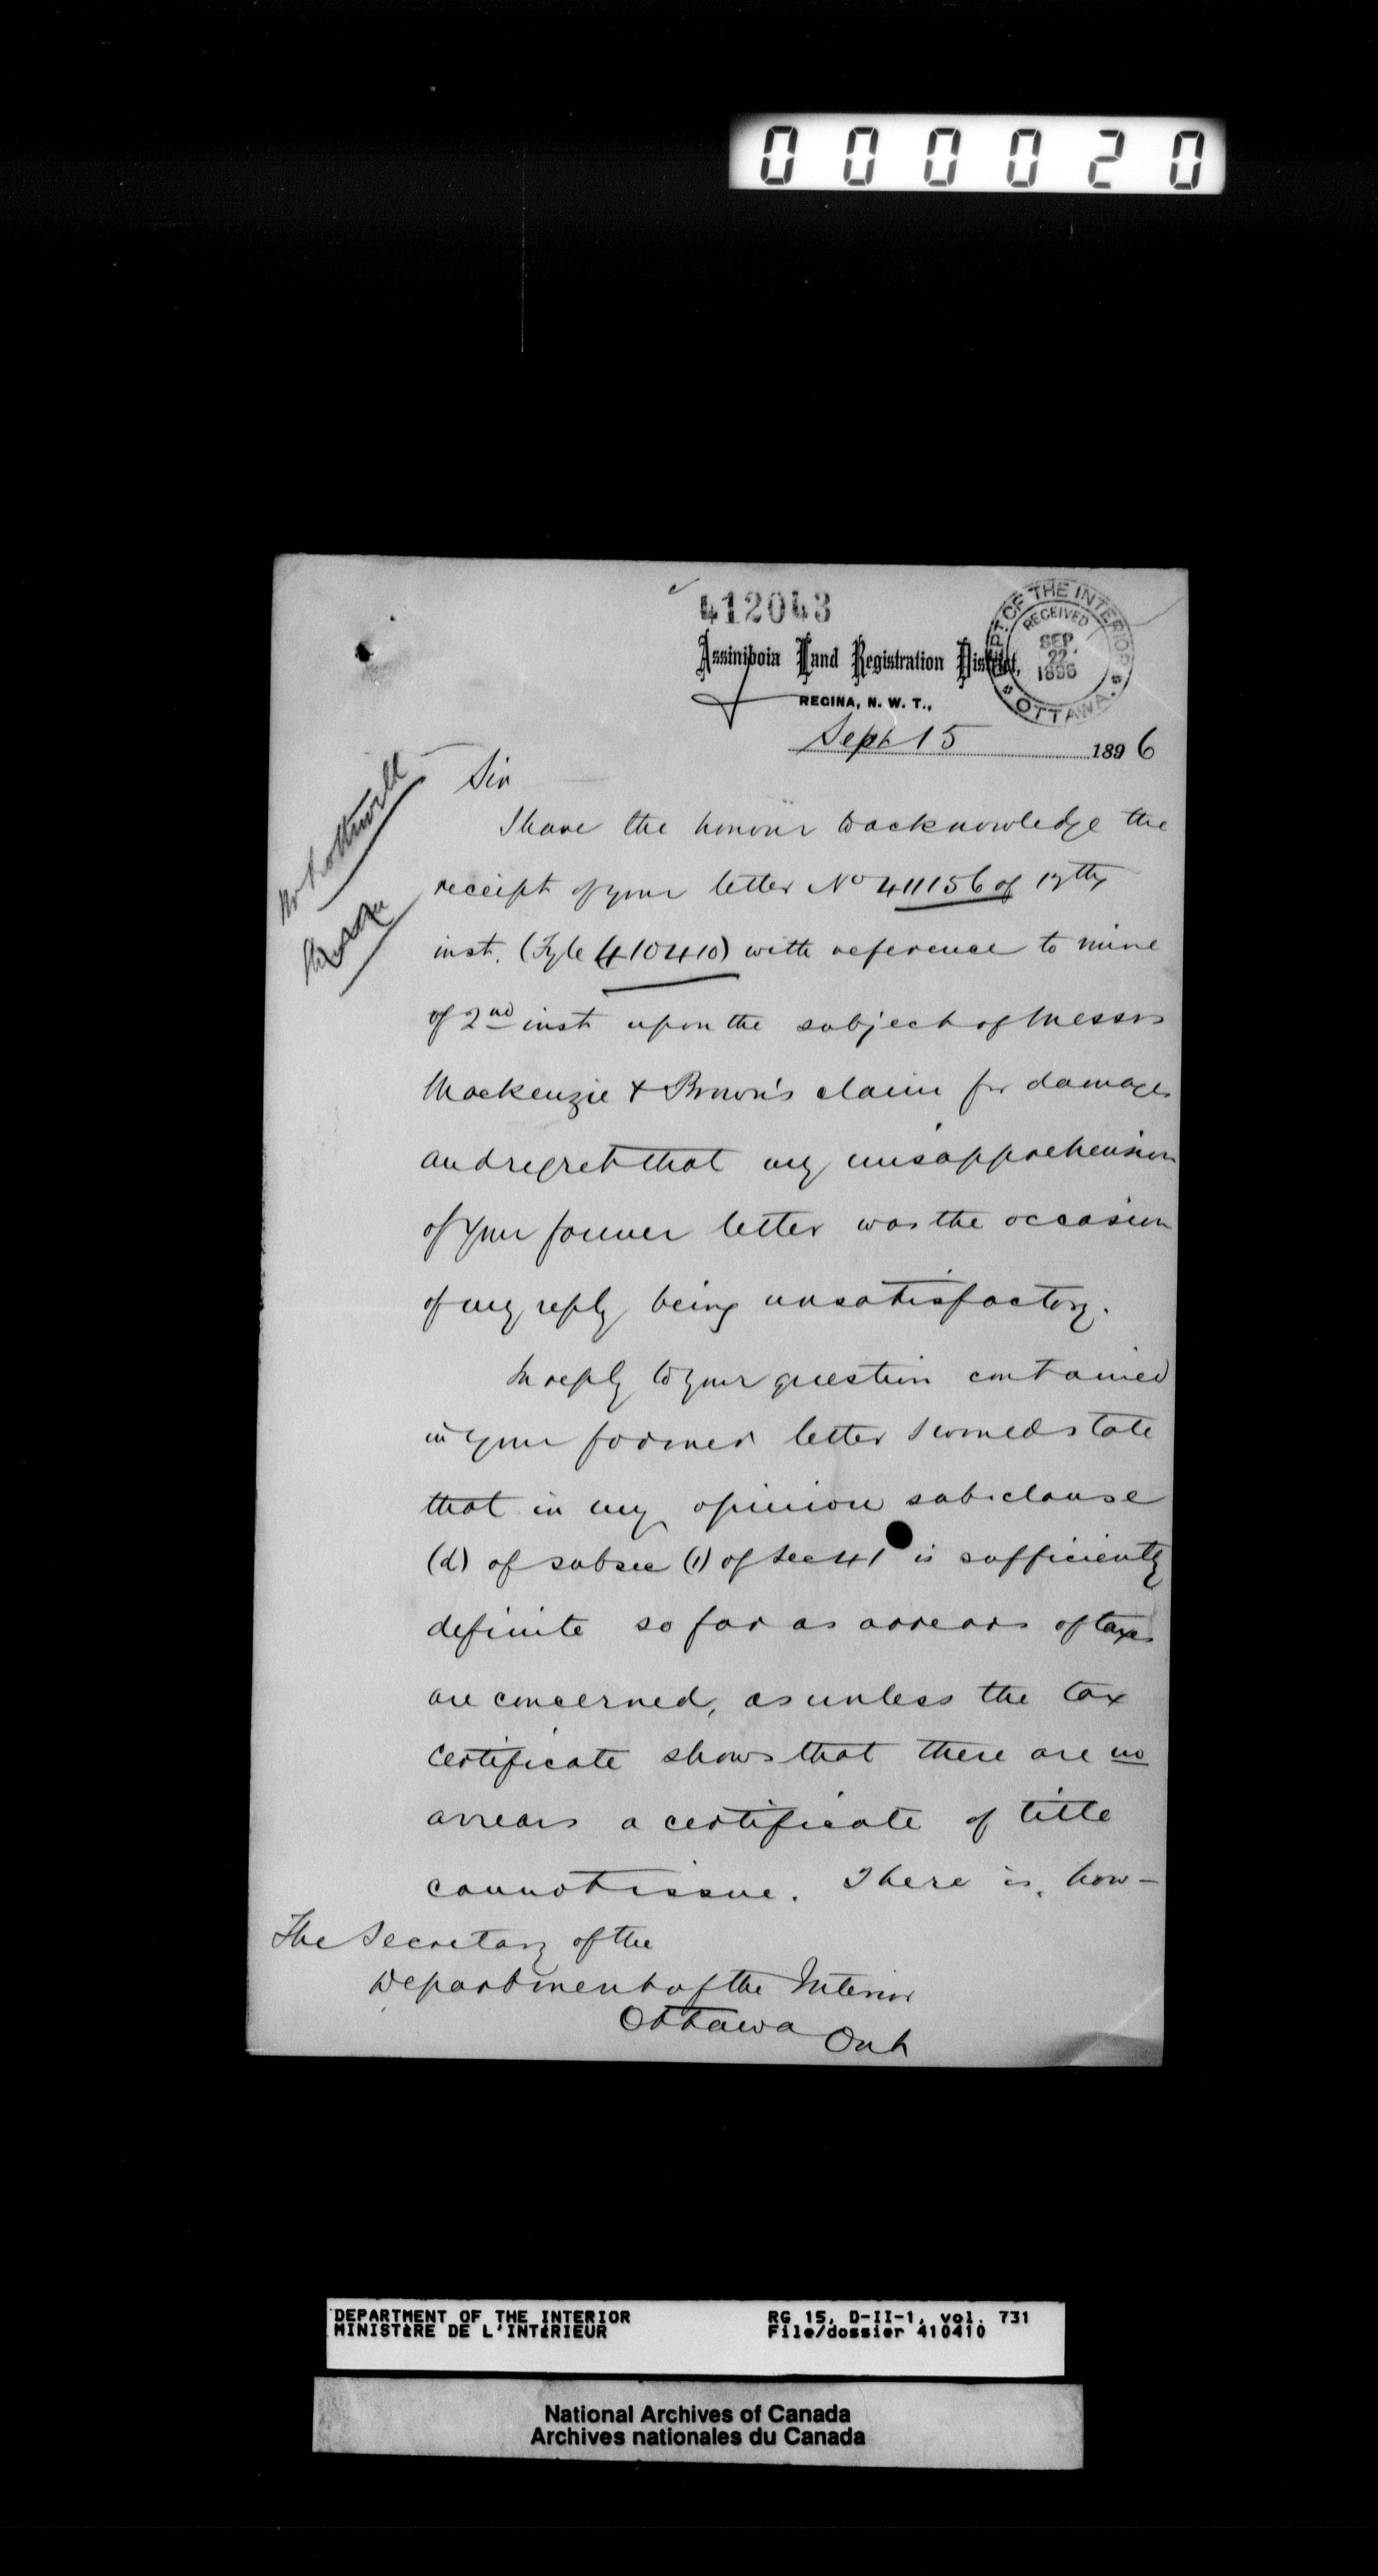 000020
412043
Assiniboia Land Registration District,
REGINA, N. W. T.,
DEPT. OF THE INTERIOR
RECEIVED
SEP.
22
1896
OTTAWA.
Sept 15 1896
Mr Rothwell
Sir
I have the honour to acknowledge the
receipt of your letter No 411156 of
inst. (Fyle 410410) with reference to mine
of 2nd inst upon the subject of Messrs
Mackenzie & Brown's claim for damages
and regret that my misapprehension
of your former letter was the occasion
of my reply being unsatisfactory.
In reply to your question contained
in your former letter I would state
that in my opinion sub-clause
(d) of subsec (1) of Sec 41 is sufficiently
definite so far as arrears of taxes
are concerned, as unless the tax
certificate shows that there are no
arrears a certificate of title
cannot issue. There is, how-
The Secretary of the
Department of the Interior
Ottawa Ont
DEPARTMENT OF THE INTERIOR RG 15, D-II-1, vol. 731
MINISTÈRE DE L'INTÉRIEUR File/dossier 410410
National Archives of Canada
Archives nationales du Canada